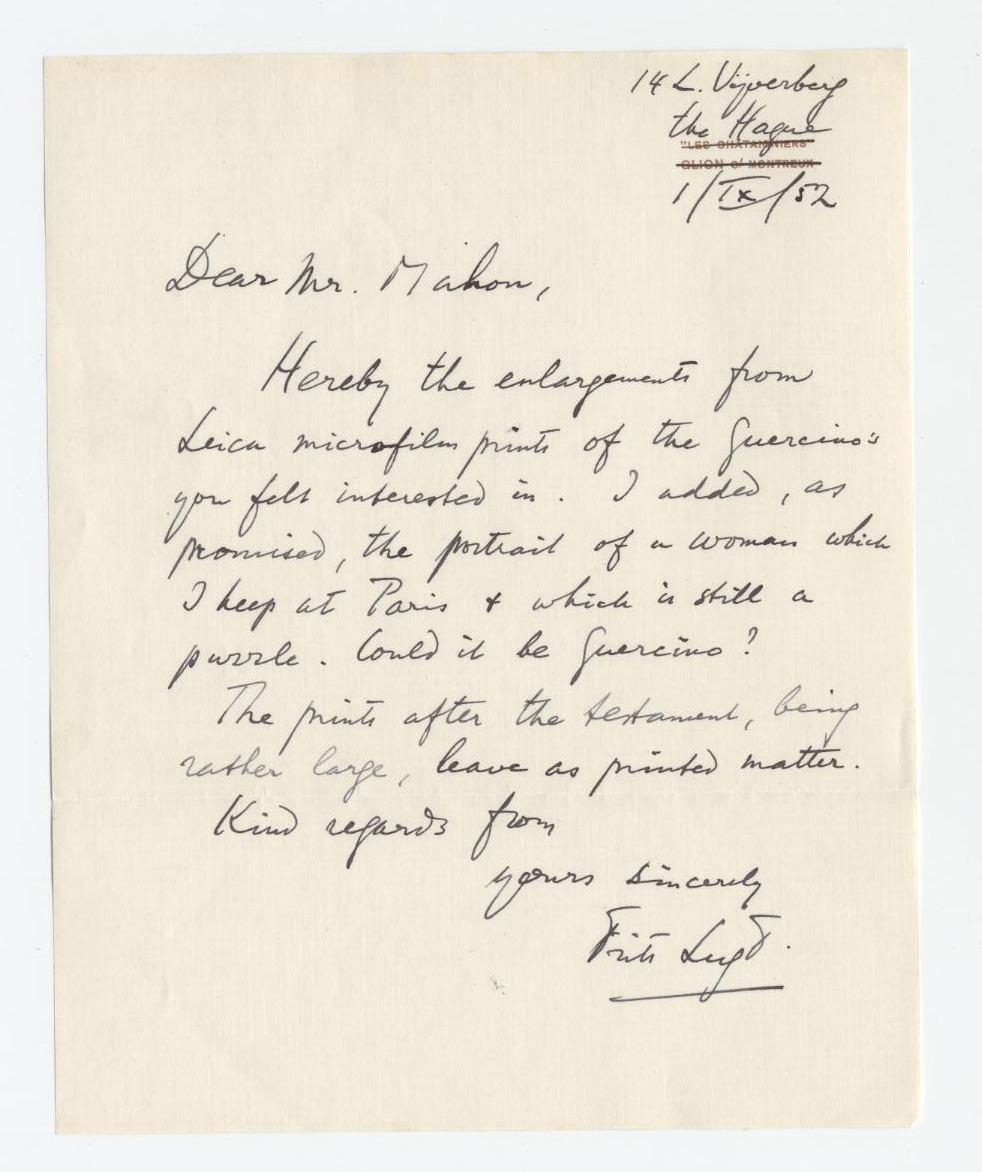 14 L. Vijverberg
the Hague
"LES CHÂTAIGNIERS"
GLION s/ MONTREUX
1/IX/52
Dear Mr. Mahon,
Hereby the enlargements from
Leica microfilm prints of the Guercino's
you felt interested in. I added, as
promised, the portrait of a woman which
I keep at Paris & which is still a
puzzle. Could it be Guercino?
The prints after the testament, being
rather large, leave as printed matter.
Kind regards from
yours sincerely
Frits Lugt.